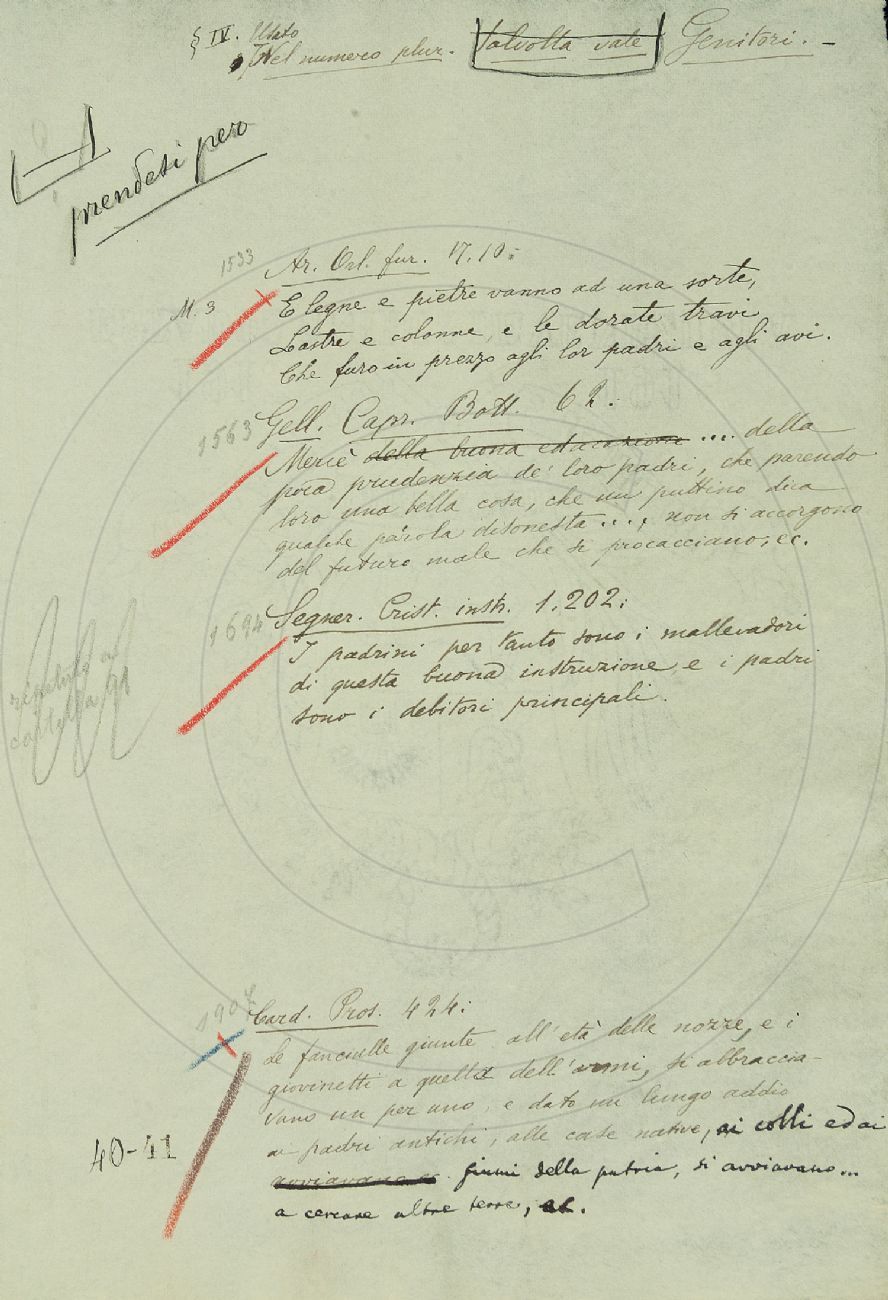 § IV. Usato
Nel numero plur. Talvolta vale Genitori. -
prendesi per
1533
Ar. Orl. fur. 17. 10:
M. 3
E legne e pietre vanno ad una sorte,
Lastre e colonne, e le dorate travi
Che furo in prezzo agli lor padri e agli avi.
1563
Gell. Capr. Bott. 62:
Mercè della buona educazione .... della
poca prudenzia de' loro padri, che parendo
loro una bella cosa, che un puttino dica
qualche parola disonesta..., non si accorgono
del futuro male che si procacciano, ec.
1694
Segner. Crist. instr. 1. 202:
I padrini per tanto sono i mallevadori
di questa buona instruzione, e i padri
sono i debitori principali.
1907
Card. Pros. 424:
Le fanciulle giunte all'età delle nozze, e i
giovinetti a quella dell'armi, si abbraccia-
vano un per uno, e dato un lungo addio
a' padri antichi, alle case native, ai colli ed ai
avviavano ec. fiumi della patria, si avviavano...
a cercare altre terre, ec.
40-41